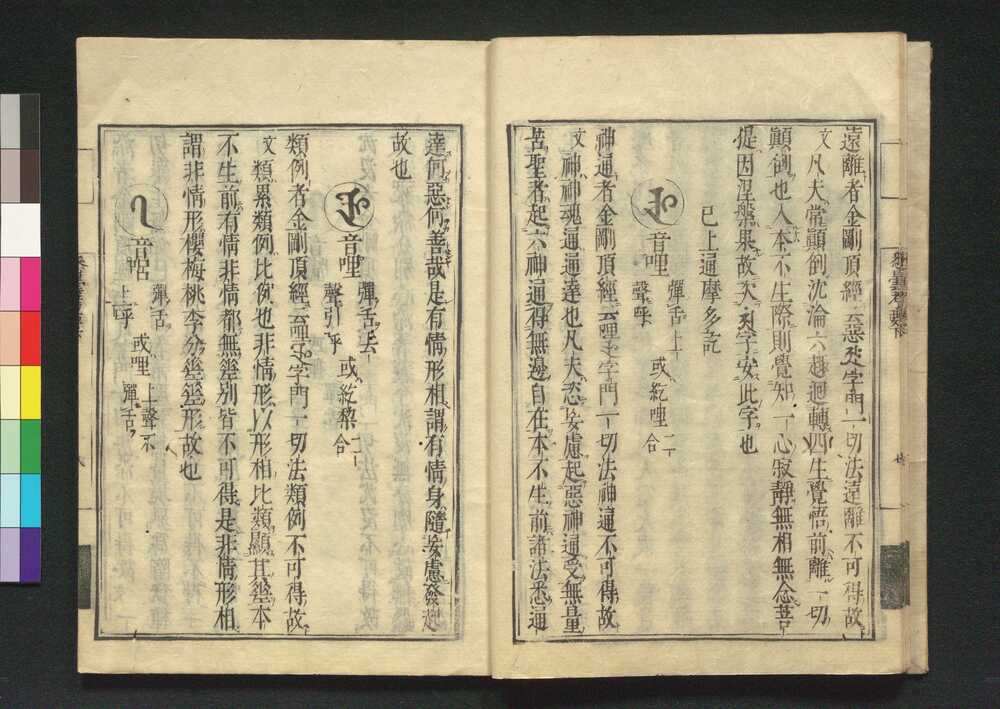 遠離者金剛頂經云惡字門一切法遠離不可得故
文凡夫常顛倒沈淪六趣迴轉四生覺悟前離一切
顛倒也入本不生際則覺知一心寂靜無相無念菩
提因涅槃果故次字安此字也
已上通摩多訖
音哩 彈舌上聲呼 或紇哩二合
神通者金剛頂經云哩字門一切法神通不可得故
文神神魂通通達也凡夫恣妄慮起惡神通受無量
苦聖者起六神通得無邊自在本不生前諸法悉通
達何惡何善哉是有情形相謂有情身隨妄慮發起
故也
音哩 彈舌去聲引呼 或紇梨二合
類例者金剛頂經云哩字門一切法類例不可得故
文類累類例比例也非情形以形相比類顯其
不生前有情非情都無別皆不可得是非情形相
謂非情形櫻梅桃李分形故也
音 彈舌上呼 或哩 上聲不彈舌